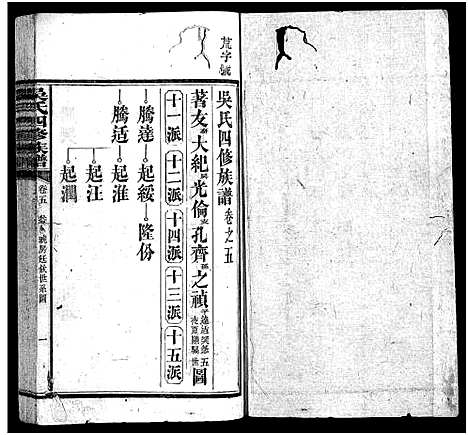 荒字號
吳氏四修族譜 卷之五
著友 大紀 光倫 孔齊 之禎 圖
十一派 十二派 十四派 十三派 十五派
騰達 起綏 隆份
騰适 起淮
起汪
起潤
吳氏四修族譜
卷五
世系圖
一